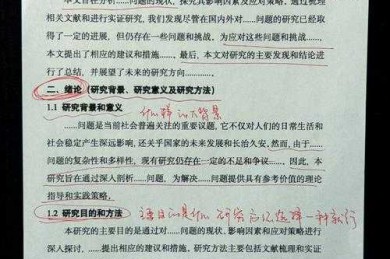 本文旨在分析……问题的现状，探究其影响因素及应对策略。通过梳理
相关文献和进行实证研究，我们发现尽管在国内外对……问题的研究已经取
得了一定的进展，但仍存在一些问题和挑战。为应对这些问题和挑战……
本文提出了相应的建议和措施……。最后，本文对研究的主要发现和结论进
行了总结，并展望了未来的研究方向……。
二、绪论（研究背景、研究意义及研究方法）
1.1 研究背景和意义 什么样的背景
……问题是当前社会普遍关注的重要议题，它不仅对人们的日常生活和
社会稳定产生深远影响，还关乎国家的未来发展和长治久安。然而，由于……
问题的复杂性和多样性，现有研究仍存在一定的不足和争议……。因此，本
研究旨在通过深入剖析……问题，为解决……问题提供具有参考价值的理论
指导和实践策略。
1.2 研究目的和方法 主要目的是什么 研究 一种就行
本研究的主要目的是通过对……问题的现状、影响因素和应对策略进行
深入探讨，……提出相应的建议和措施。研究方法主要包括文献梳理和实证